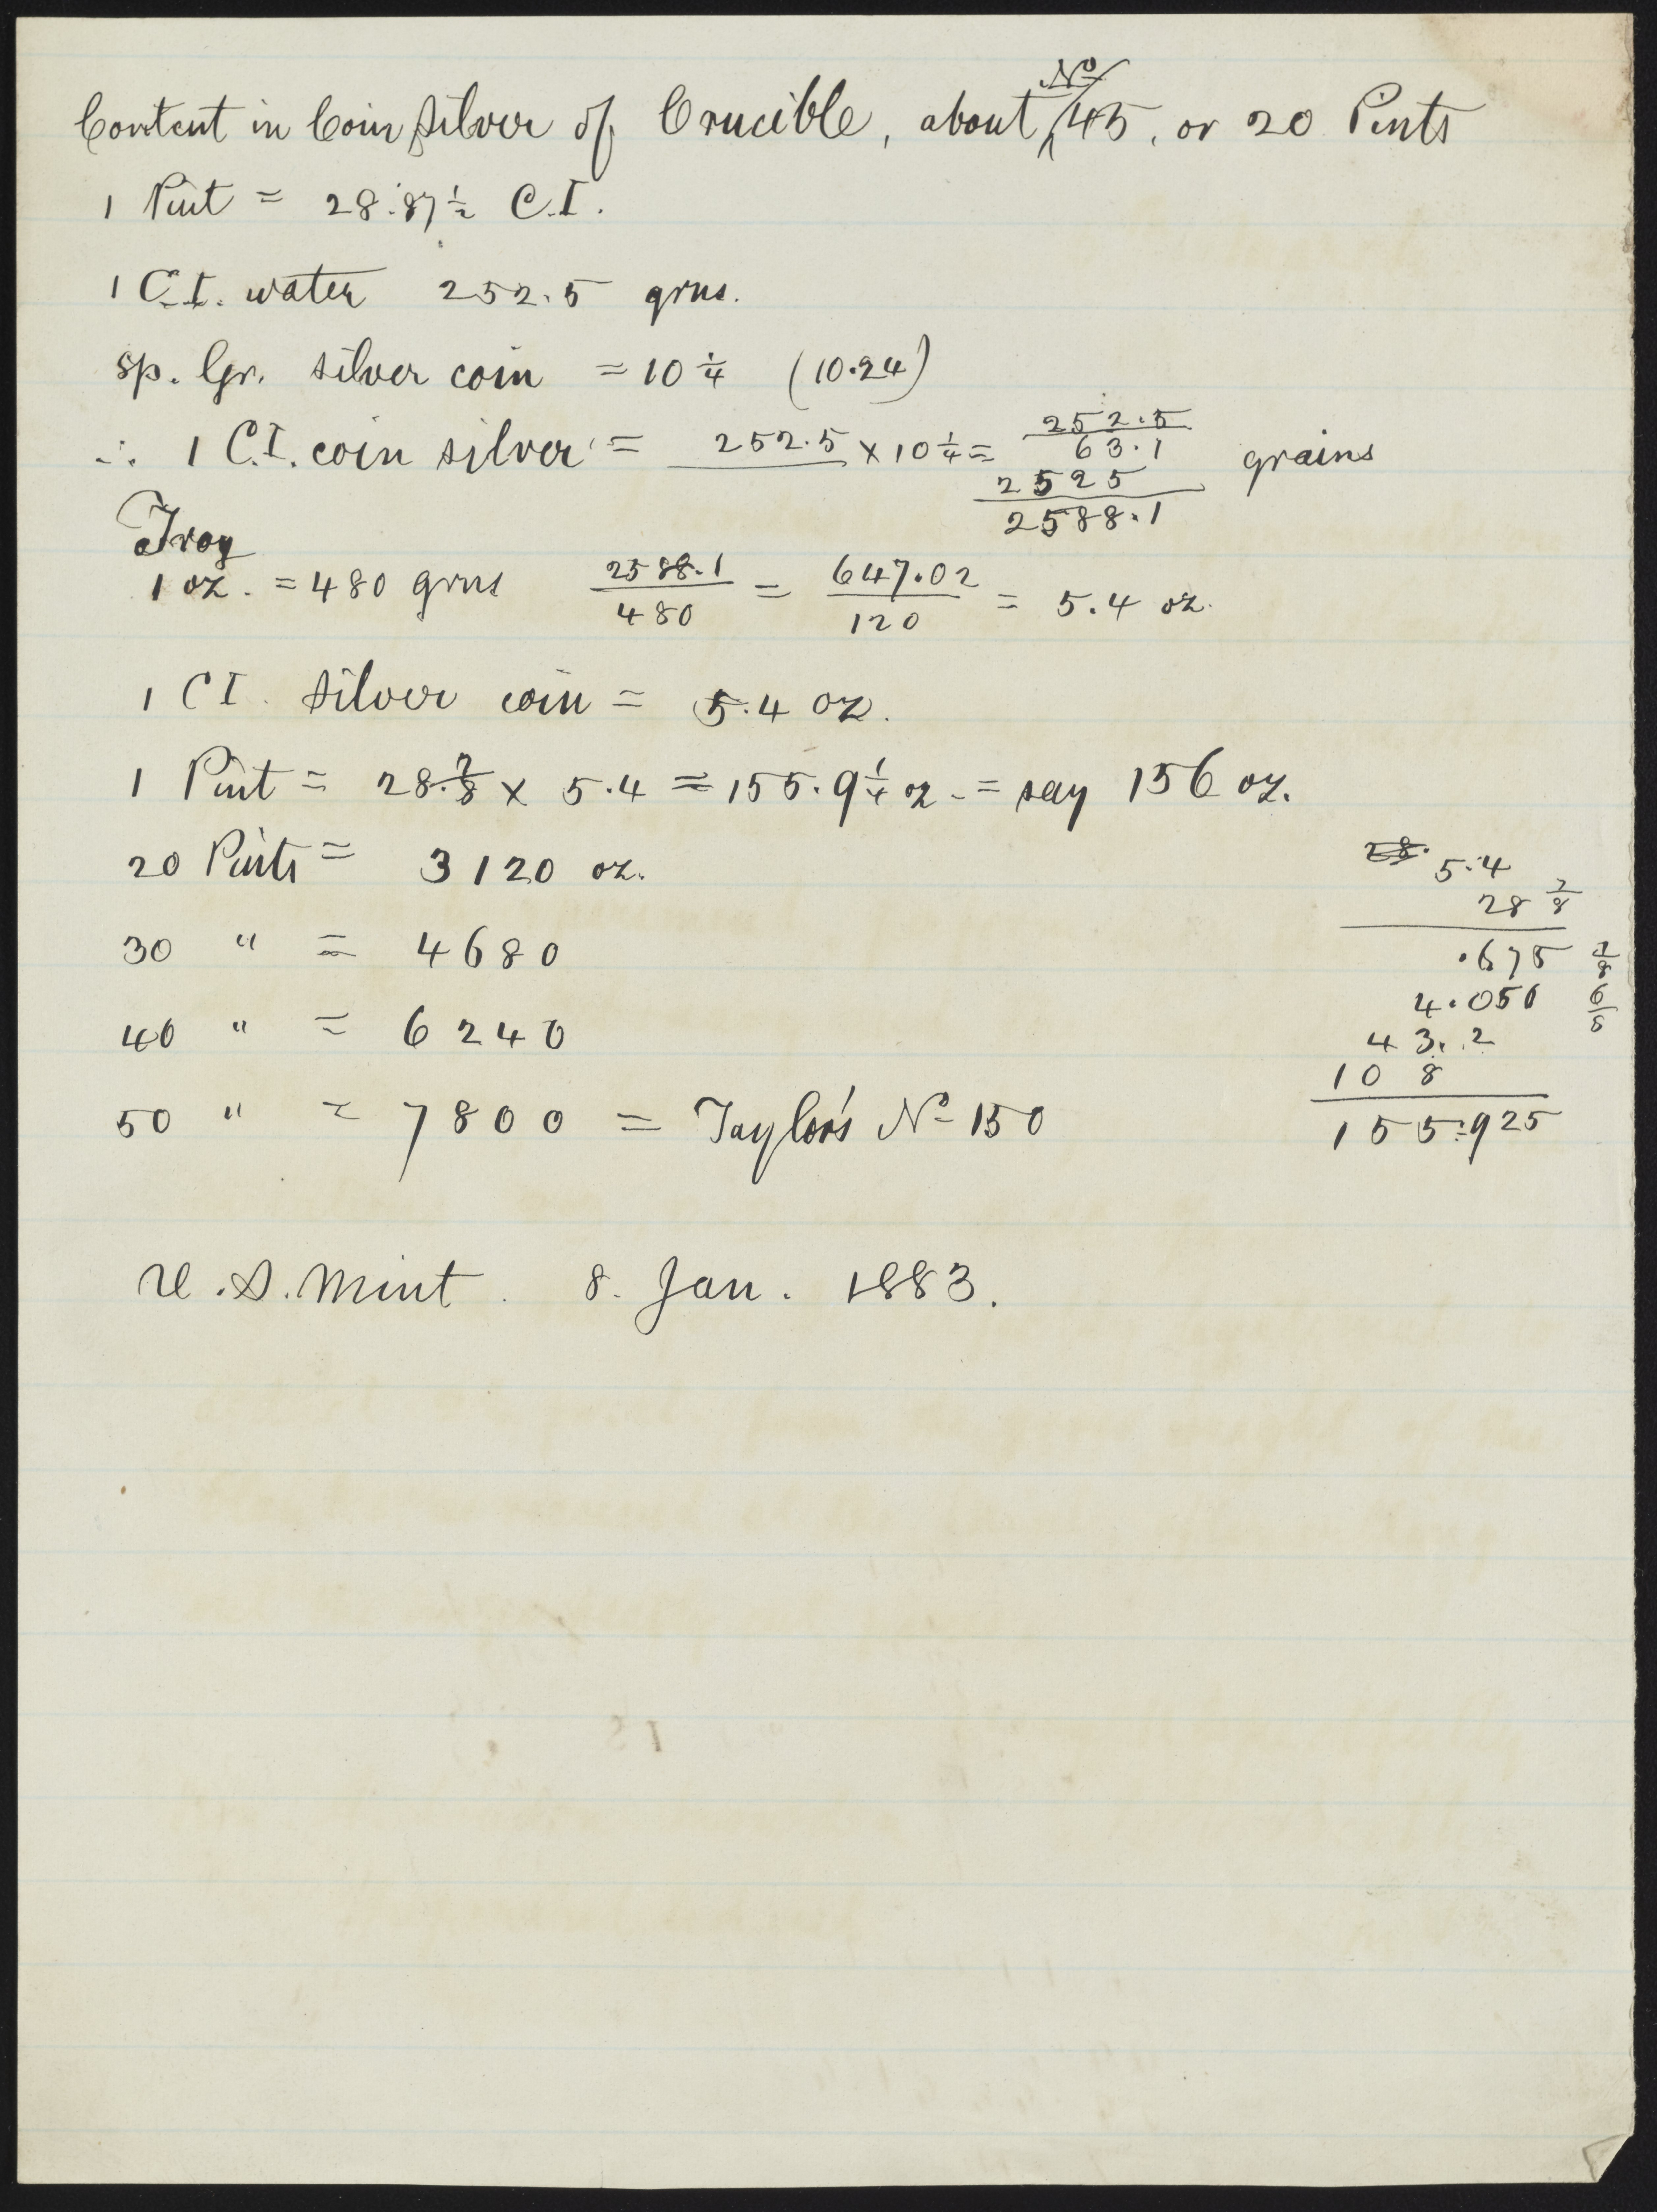 Content in Coin Silver of Crucible, about No 45, or 20 Pints
1 Pint = 28.87½ C.I.
1 C.I. water 252.5 grns.
Sp. Gr. Silver coin = 10¼ (10.24)
∴ 1 C.I. coin silver = 252.5 × 10¼ = 252.5
63.1 grains
2525
2588.1
Troy
1 oz. = 480 grns 2588.1/480 = 647.02/120 = 5.4 oz.
1 C I. Silver coin = 5.4 oz.
1 Pint = 28.⅞ × 5.4 = 155.9¼ oz. = say 156 oz.
20 Pints = 3120 oz.
30 " = 4680
40 " = 6240
50 " = 7800 = Taylor's No 150
28.
5.4
28 ⅞
.675 ⅛
4.050 6/8
43.2
10 8
155.925
U.S. Mint. 8. Jan. 1883.